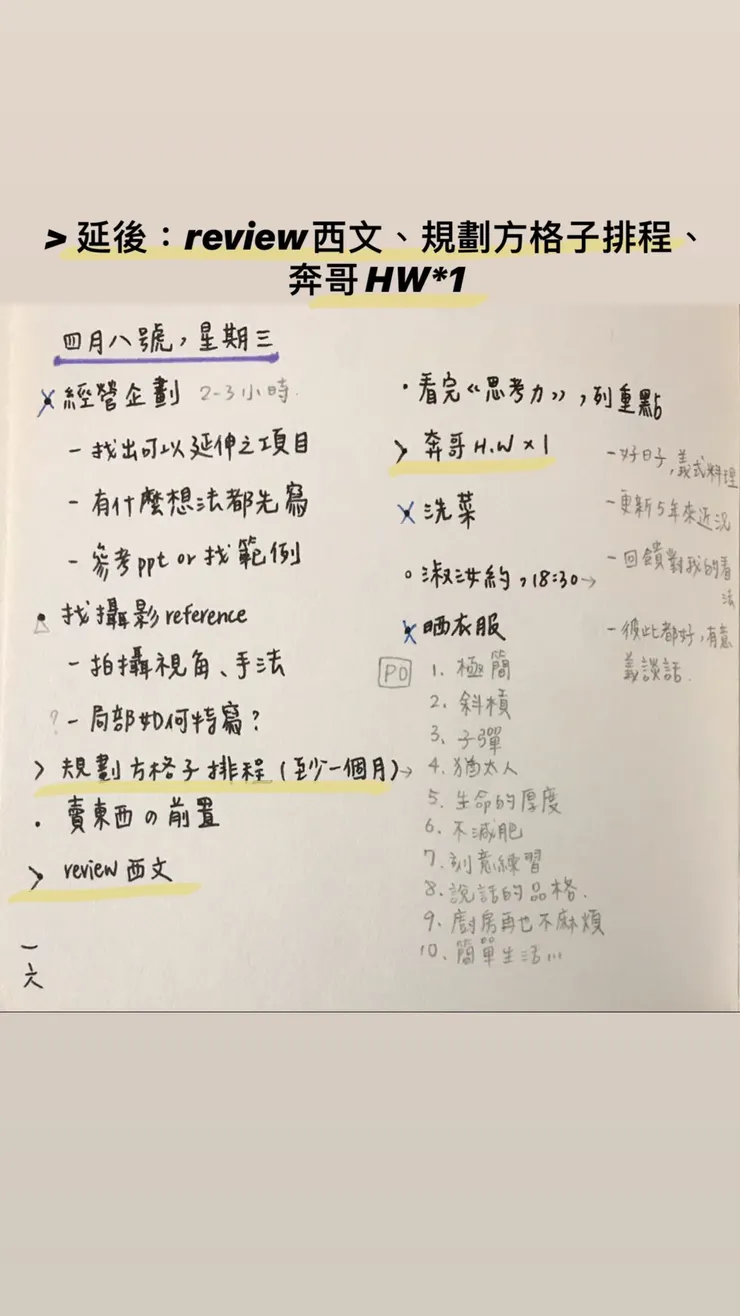 > 延後：review西文、規劃方格子排程、
奔哥HW*1
四月八號，星期三
× 經營企劃 2-3小時.
- 找出可以延伸之項目
- 有什麼想法都先寫
- 參考ppt or 找範例
• 找攝影reference
- 拍攝視角、手法
? - 局部如何特寫？
> 規劃方格子排程（至少一個月）→
• 賣東西の前置
> review 西文
一六
• 看完《思考力》，列重點
> 奔哥 H.W × 1
× 洗菜
○ 淑汝約，18:30→
- 好日子，義式料理
- 更新5年來近況
- 回饋對我的看法
- 彼此都好，有意義談話.
× 晒衣服
PO
1. 極簡
2. 斜槓
3. 子彈
4. 猶太人
5. 生命的厚度
6. 不減肥
7. 刻意練習
8. 說話的品格.
9. 廚房再也不麻煩
10. 簡單生活...